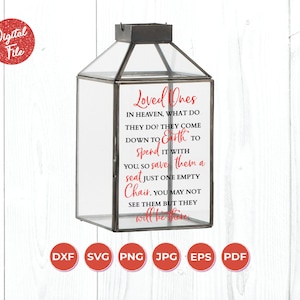 Digital
File
Loved Ones
IN HEAVEN, WHAT DO
THEY DO? THEY COME
DOWN TO Earth TO
spend IT WITH
YOU, SO save them a
seat JUST ONE EMPTY
Chair. YOU MAY NOT
SEE THEM BUT THEY
will be there
DXF SVG PNG JPG EPS PDF